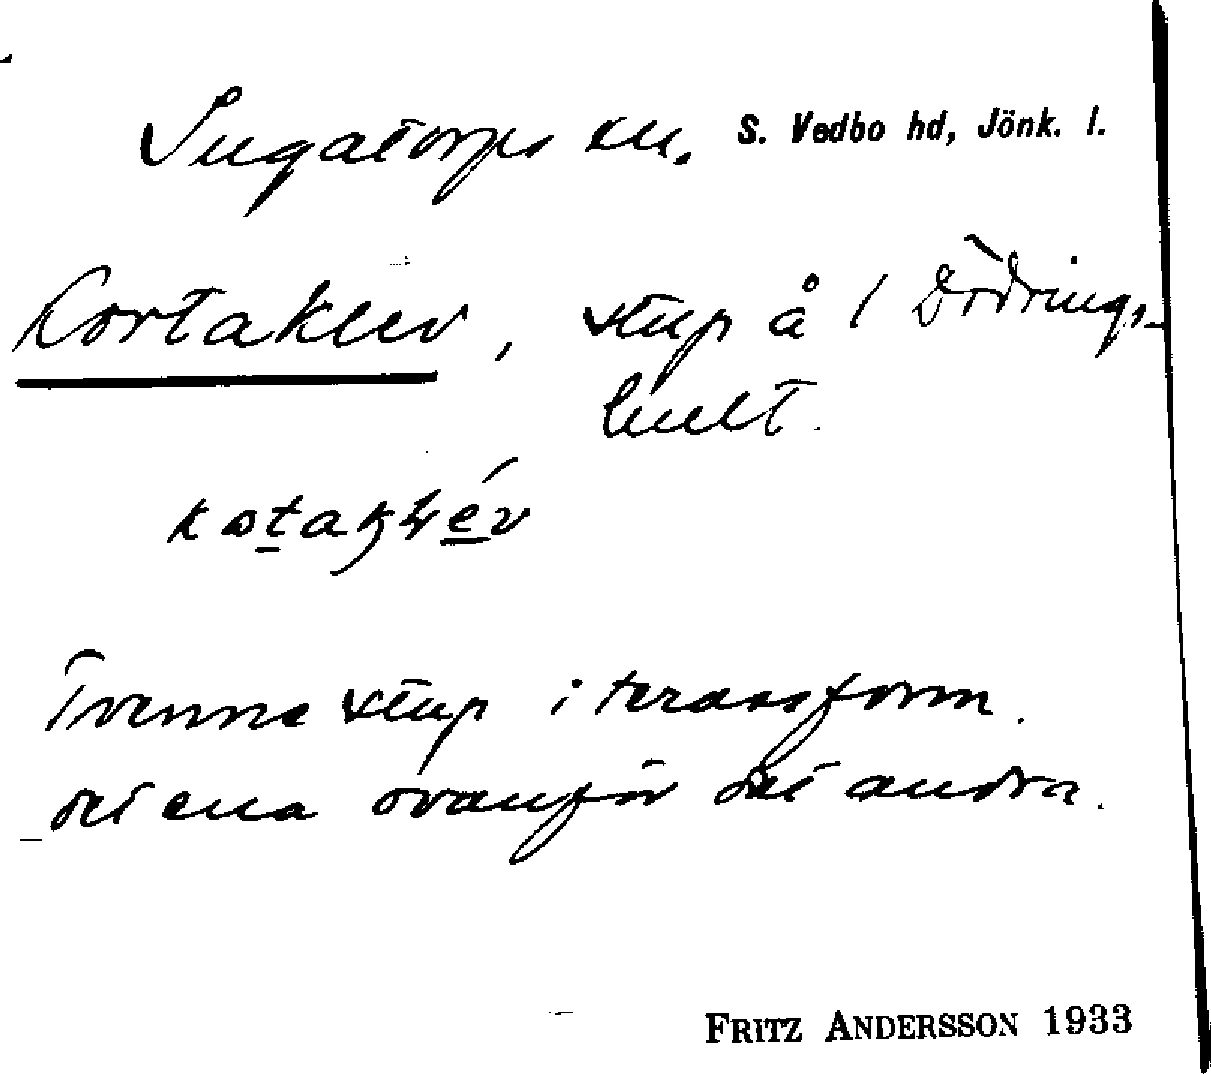 Ingatorps sn. S. Vedbo hd, Jönk. l.
Kortaklev, stup å / Dödrings-
hult.
Tvenne stup i terassform.
det ena ovanför det andra.
FRITZ ANDERSSON 1933